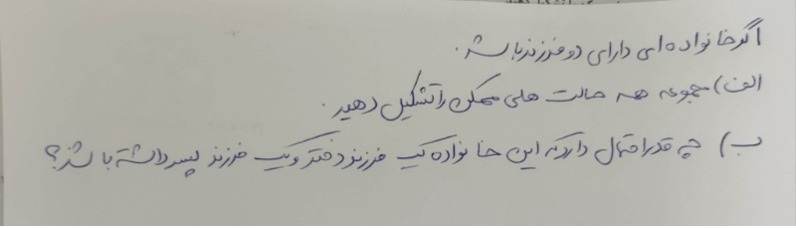 اگر خانواده ای دارای دو فرزند باشد.
الف) مجموعه همه حالت های ممکن را تشکیل دهید.
ب) چه قدر احتمال دارد که این خانواده یک فرزند دختر و یک فرزند پسر داشته باشد؟